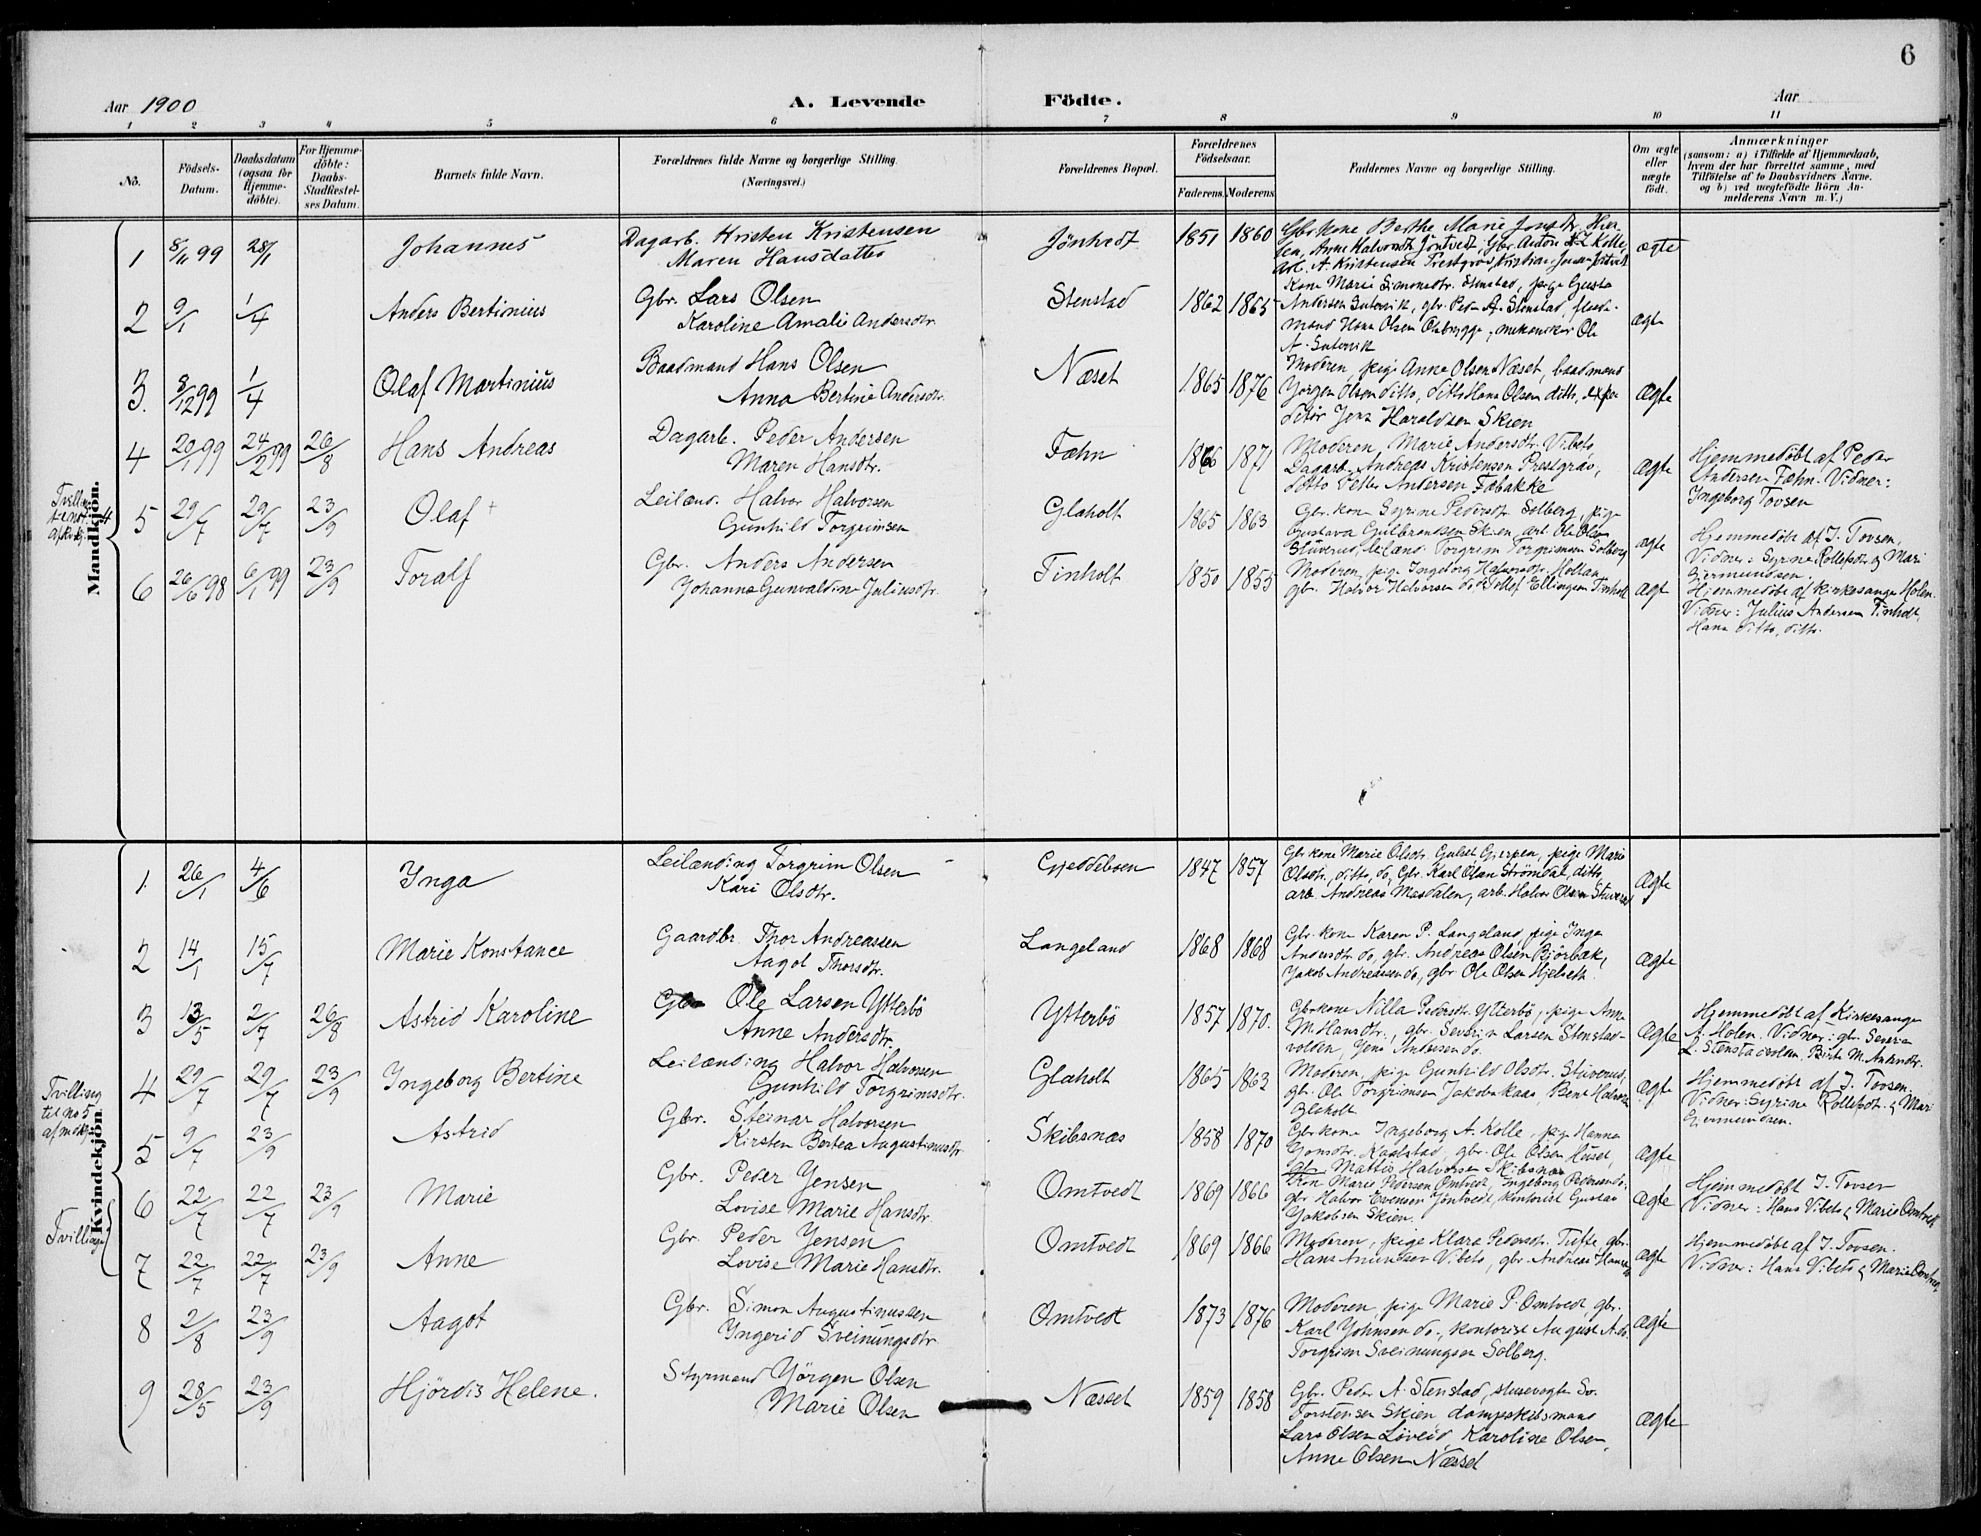 6
Aar 1900 A. Levende Födte. Aar
1 2 3 4 5 6 7 8 9 10 11
No.
Födsels-
Datum.
Daabsdatum
(ogsaa for
Hjemme-
döbte).
For Hjemme-
döbte:
Daabs-
Stadfæstel-
ses Datum.
Barnets fulde Navn.
Forældrenes fulde Navne og borgerlige Stilling.
(Næringsvei.)
Forældrenes Bopæl.
Forældrenes
Födselsaar.
Faderens. Moderens.
Faddernes Navne og borgerlige Stilling.
Om ægte
eller
uægte
födt.
Anmærkninger
(saasom: a) i Tilfælde af Hjemmedaab,
hvem der har forrettet samme, med
Tilföielse af to Daabsvidners Navne.
og b) ved uægtefödte Börn An-
melderens Navn m. V.)
Mandkjön.
1 8/11 99 28/1 Johannes
Dagarb. Kristen Kristensen
Maren Hansdatter
Jöntvedt 1851 1860
Gbr. kone Berthe Marie
Anne Halvorsdtr. Jöntvedt, Gbr. Anton Kolle
A. Kristensen Prestgrav, Kristian Jensen Jöntvedt
ægte
2 9/1 1/4 Anders Bertinius
Gbr. Lars Olsen
Karoline Amalie Andersdtr.
Stenstad 1862 1865
Kone Marie Simonsdtr. Stenstad, pige Gusta
Andersen, gbr. Peder A. Stenstad,
mand Hans Olsen, mekaniker Ole
A.
ægte
3. 8/12 99 1/4 Olaf Martinius
Baadmand Hans Olsen
Anna Bertine Andersdtr.
Næset 1865 1876
Moderen, pige Anne Olsen Næset, baadmand
Jörgen Olsen ditto, ditto Hans Olsen ditto, expe-
ditör Jens Haraldsen Skien
ægte
4 20/1 99 24/2 99 26/8 Hans Andreas
Dagarb. Peder Andersen
Maren Hansdtr.
Fæhn 1866 1871
Moderen, Marie Andersdtr. Vibeto,
Dagarb. Andreas Kristensen Prestgrav,
ditto Peder Andersen Fæbakke
ægte
Hjemmedöbt af Peder
Andersen Fæhn. Vidner:
Ingeborg Tovsen
Tvilling
til no 4
af kvkj.
5 29/7 29/7 23/9 Olaf +
Leilænd. Halvor Halvorsen
Gunhild Torgrimsen
Glaholt 1865 1863
Gbr. kone Syrine Pedersdtr. Solberg, pige
Gustava Gulbrandsen Skien, arb. Ole Olsen
Stuverud, leilænd. Torgrim Torgrimsen Solberg
ægte
Hjemmedöbt af J. Tovsen,
Vidner: Syrine Rollefsdtr. & Mari
Gjermundsen.
6 26/6 98 6/1 99 23/9 Toralf
Gbr. Anders Andersen
Johanne Gunvaldine Juliusdtr.
Tinholt 1850 1855
Moderen, pige Ingeborg Halvorsdtr. Moltan
gbr. Halvor Halvorsen do, Detlef Ellingsen Tinholt
ægte
Hjemmedöbt af Kirkesanger Holen.
Vidner: Julius Andersen Tinholt,
Hans ditto, ditto.
Kvindekjön.
1. 26/1 4/6 Inga
Leilænding Torgrim Olsen
Kari Olsdtr.
Gjeddeboen 1847 1857
Gbr kone Marie Olsdtr. Gulset Gjerpen, pige Marie
Olsdtr. ditto, do, Gbr. Karl Olsen Strömdal, ditto,
arb. Andreas Mæsdalen, arb. Halvor Olsen Stuverud
ægte
2 14/1 15/7 Marie Konstance
Gaardbr. Thor Andreassen
Aagot Thorsdtr.
Langeland 1868 1868
Gbr. kone Karen P. Langeland, pige Inga
Andersdtr do, gbr. Andreas Olsen Bjorbæk,
Jakob Andreassen do, gbr Ole Olsen Hjelseth
ægte
3 13/5 2/7 26/8 Astrid Karoline
Gbr Ole Larsen Ytterbö
Anne Andersdtr.
Ytterbö 1857 1870.
Gbr kone Nilla Pedersdtr. Ytterbö, pige Anne
M. Hansdtr., gbr. Severin Larsen Stenstad-
volden, Jens Andersen do.
ægte
Hjemmedöbt af Kirkesanger
A. Holen. Vidner: gbr. Severin
L. Stenstadvolden, Birte M. Andersdtr.
Tvilling
til no 5
af mdkj.
4 29/7 29/7 23/9 Ingeborg Bertine
Leilænding Halvor Halvorsen
Gunhild Torgrimsdtr.
Glaholt 1865 1863
Moderen, pige Gunhild Olsdtr. Stuverud,
gbr. Ole Torgrimsen Jakobskaas, Bent Halvorsen
Glaholt
ægte
Hjemmedöbt af J. Tovsen.
Vidner: Syrine Rollefsdtr. & Mari
Gjermundsen.
5 9/7 23/9 Astrid
Gbr. Steinar Halvorsen
Kirsten Bertea Augustinusdtr
Skibsnæs 1858 1870
Gbr kone Ingeborg A. Kolle, pige Hanna
Jonsdtr. Kaalstad, gbr. Ole Olsen Huset,
gbr. Mattis Halvorsen Skibsnæs
ægte
Tvillinger
6 22/7 22/7 23/9 Marie
Gbr. Peder Jensen
Lovise Marie Hansdtr
Omtvedt 1869 1866
Kone Marie Pedersen Omtvedt, Ingeborg Pedersen do.
gbr Halvor Evensen Jöntvedt, kontorist Gustav
Jakobsen Skien.
ægte
Hjemmedöbt J. Tovsen
Vidner: Hans Vibeto & Marie Omtvedt
7 22/7 22/7 23/9 Anne
Gbr. Peder Jensen
Lovise Marie Hansdtr.
Omtvedt 1869 1866
Moderen, pige Klara Pedersdtr. Tufte, gbr.
Hans Amundsen Vibeto, gbr. Andreas Hansen
ægte
Hjemmedöbt af J. Tovsen.
Vidner: Hans Vibeto & Marie Omtvedt
8 2/8 23/9 Aagot
Gbr. Simon Augustinussen
Ingerid Sveinungsdtr.
Omtvedt 1873 1876
Moderen, pige Marie P. Omtvedt, gbr.
Karl Johnsen do., kontorist August A. do.
Torgrim Sveinungsen Solberg.
ægte
9 28/5 23/9 Hjördis Helene.
Styrmand Jörgen Olsen
Marie Olsen
Næsset 1859 1858
Gbr. Peder A. Stenstad, slusevogter Sv.
Torstensen Skien, dampskibsmand
Lars Olsen Löveid, Karoline Olsen,
Anne Olsen Næsset
ægte